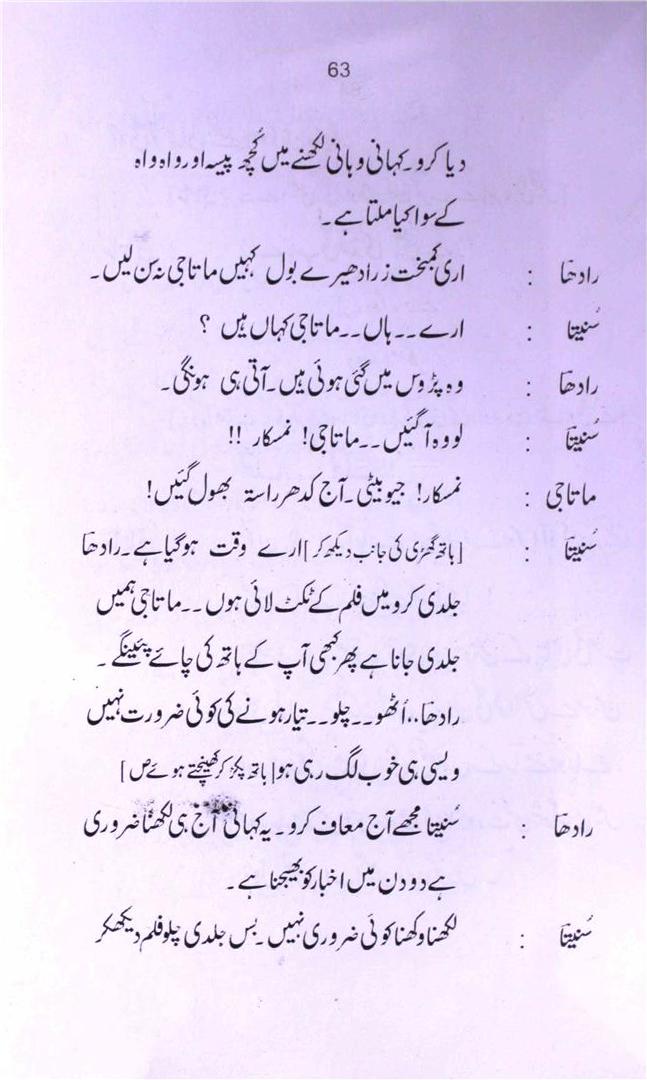 63
دیا کرو۔ کہانی وہانی لکھنے میں کُچھ پیسہ اور واہ واہ
کے سوا کیا ملتا ہے۔
رادھا : اری کمبخت زرا دھیرے بول کہیں ماتاجی نہ سن لیں۔
سُنیتا : ارے۔۔ہاں۔۔ماتاجی کہاں ہیں ؟
رادھا : وہ پڑوس میں گئی ہوئی ہیں۔آتی ہی ہونگی۔
سُنیتا : لو وہ آگئیں۔۔ماتاجی! نمسکار !!
ماتاجی : نمسکار! جیو بیٹی۔آج کدھر راستہ بھول گئیں!
سُنیتا : [ہاتھ گھڑی کی جانب دیکھ کر] ارے وقت ہوگیا ہے۔رادھا
جلدی کرو میں فلم کے ٹکٹ لائی ہوں۔۔ماتاجی ہمیں
جلدی جانا ہے پھر کبھی آپ کے ہاتھ کی چائے پئینگے۔
رادھا،،اُٹھو۔۔چلو۔۔تیار ہونے کی کوئی ضرورت نہیں
ویسی ہی خوب لگ رہی ہو[ہاتھ پکڑ کر کھینچتے ہوئے ص]
رادھا : سُنیتا مجھے آج معاف کرو۔یہ کہانی آج ہی لکھنا ضروری
ہے دو دن میں اخبار کو بھیجنا ہے۔
سُنیتا : لکھنا وکھنا کوئی ضروری نہیں۔بس جلدی چلو فلم دیکھکر